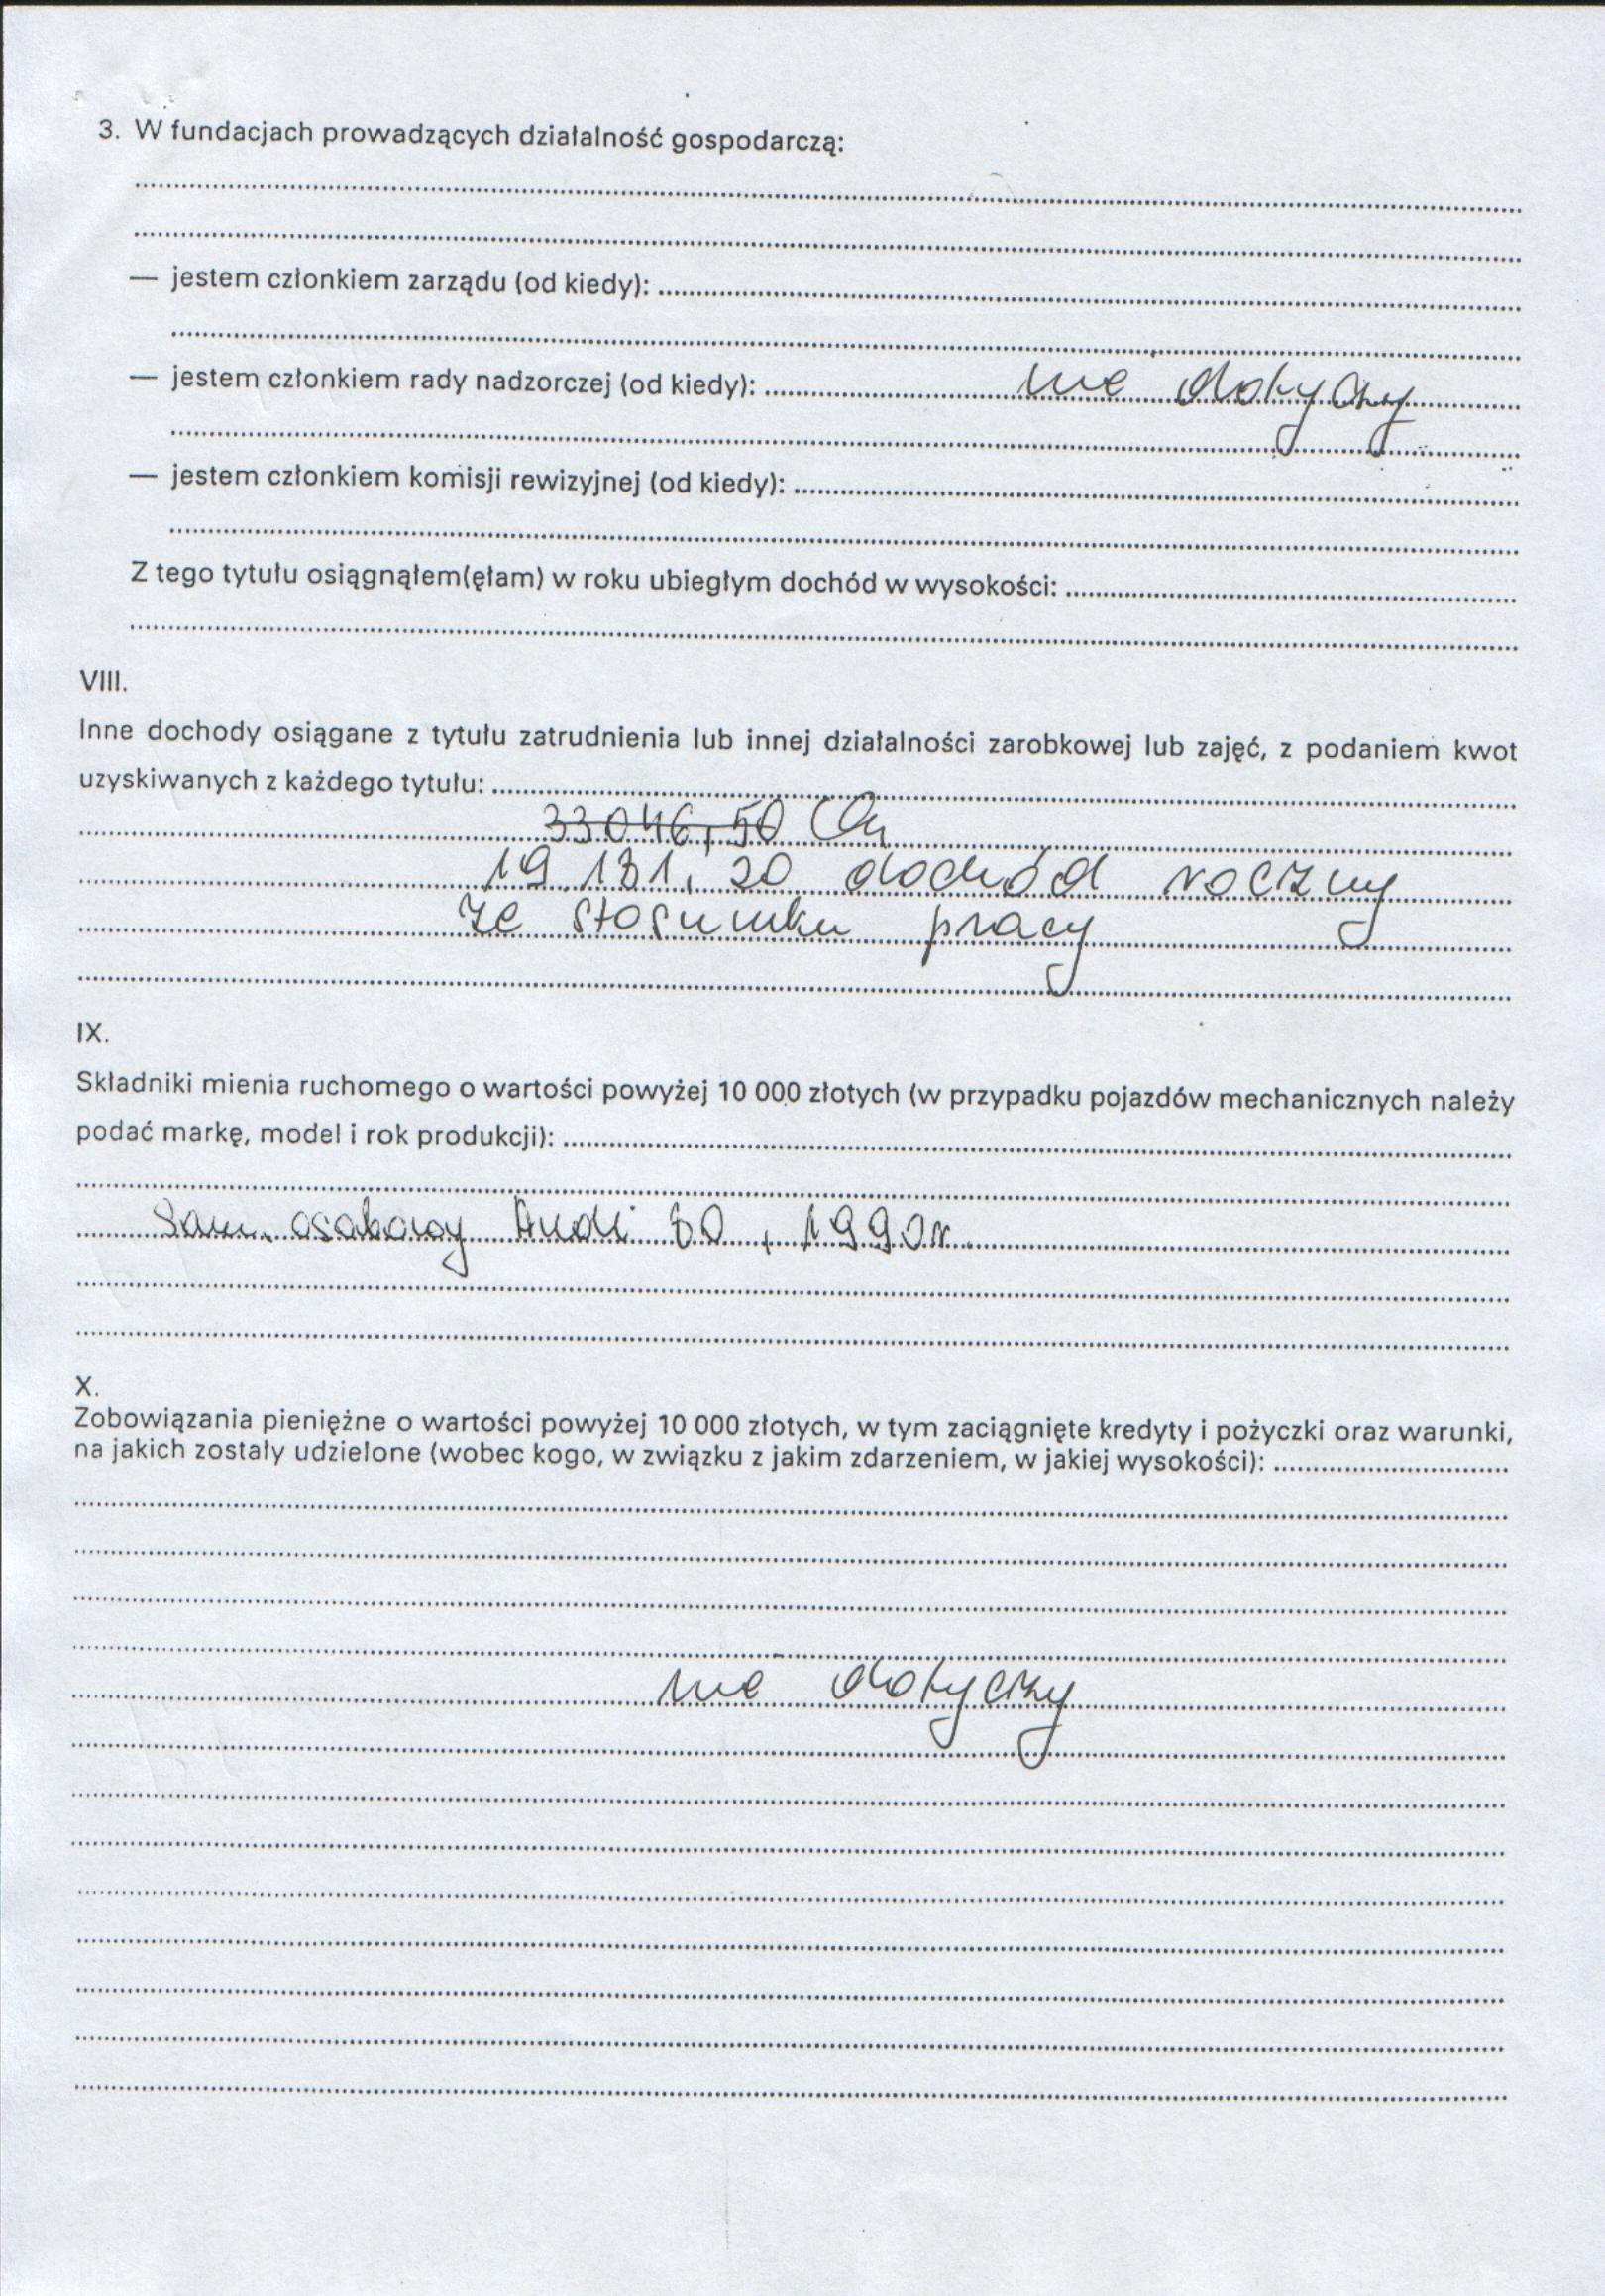 3. W fundacjach prowadzących działalność gospodarczą:
— jestem członkiem zarządu (od kiedy):
— jestem członkiem rady nadzorczej (od kiedy): nie dotyczy
— jestem członkiem komisji rewizyjnej (od kiedy):
Z tego tytułu osiągnąłem(ęłam) w roku ubiegłym dochód w wysokości:
VIII.
Inne dochody osiągane z tytułu zatrudnienia lub innej działalności zarobkowej lub zajęć, z podaniem kwot
uzyskiwanych z każdego tytułu:
33046,50
19.131,20 dochód roczny
ze stosunku pracy
IX.
Składniki mienia ruchomego o wartości powyżej 10 000 złotych (w przypadku pojazdów mechanicznych należy
podać markę, model i rok produkcji):
Sam. osobowy Audi 80, 1990r.
X.
Zobowiązania pieniężne o wartości powyżej 10 000 złotych, w tym zaciągnięte kredyty i pożyczki oraz warunki,
na jakich zostały udzielone (wobec kogo, w związku z jakim zdarzeniem, w jakiej wysokości):
nie dotyczy